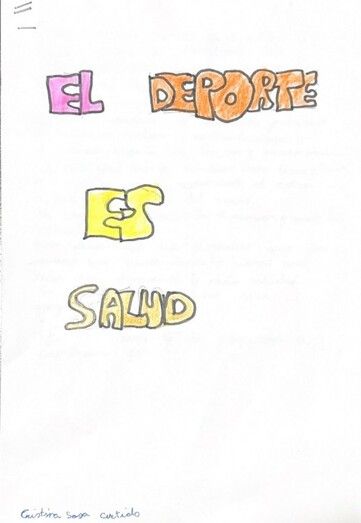 EL DEPORTE
ES
SALUD
Cristina Sosa